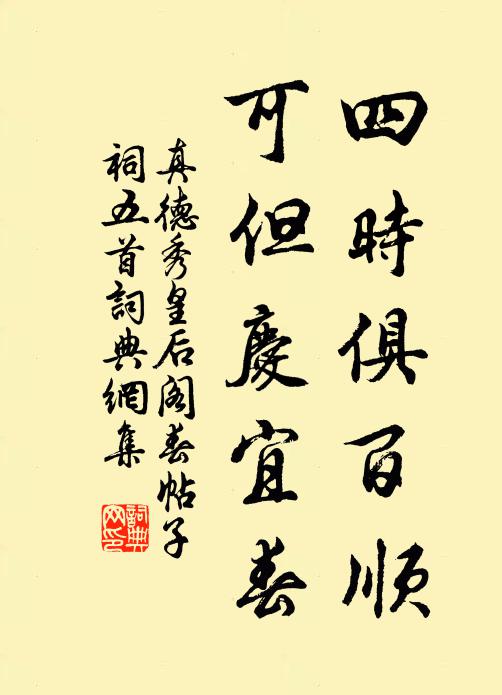 四時俱百順
可但慶宜春
真德秀皇后阁春帖子
祠五首詞典網集
詞典
网印